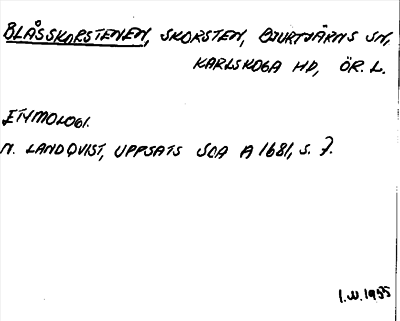 BLÅSSKORSTENEN, SKORSTEN, BJURTJÄRNS SN,
KARLSKOGA HD, ÖR. L.
ETYMOLOGI.
N. LANDQVIST, UPPSATS SOA A 1681, S. 7.
I.W. 1955